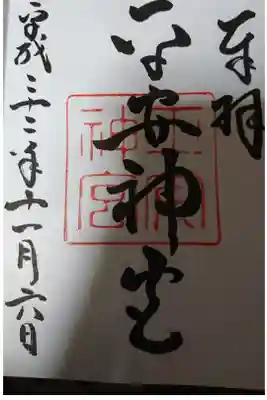 奉拝
平安神宮
平成二十二年十一月六日
神宮